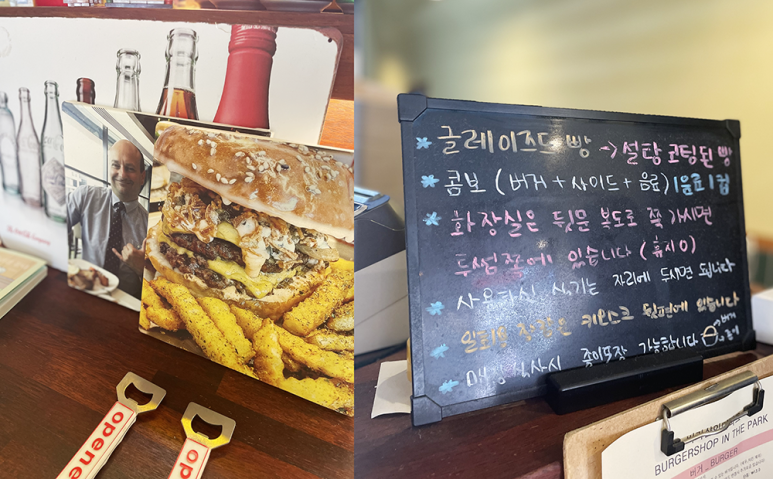 opene
opene
글레이즈드 빵 → 설탕 코팅된 빵
콤보 (버거 + 사이드 + 음료) 1음료 1컵
화장실은 뒷문 복도로 쭉 가시면
투썸쪽에 있습니다 (휴지 O)
사용하신 식기는 자리에 두시면 됩니다
일회용 장갑은 키오스크 뒷편에 있습니다
매장식사시 종이포장 가능합니다
버거
종이
BURGERSHOP IN THE PARK
버거 _ BURGER